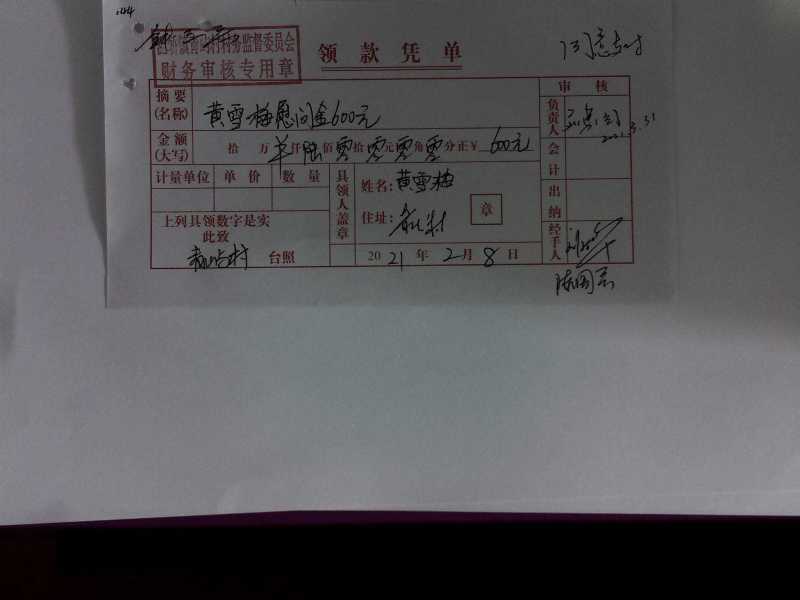 村务监督委员会
财务审核专用章
领款凭单
同意支付
摘要
(名称)
黄雪梅慰问金600元
审核
负责人
2021.3.31
金额
(大写)
拾万仟陆佰零拾零元零角零分正¥600元
会计
计量单位 单价 数量
具领人盖章
姓名:黄雪梅
住址:
章
出纳
上列具领数字是实
此致
村 台照
2021年2月8日
经手人